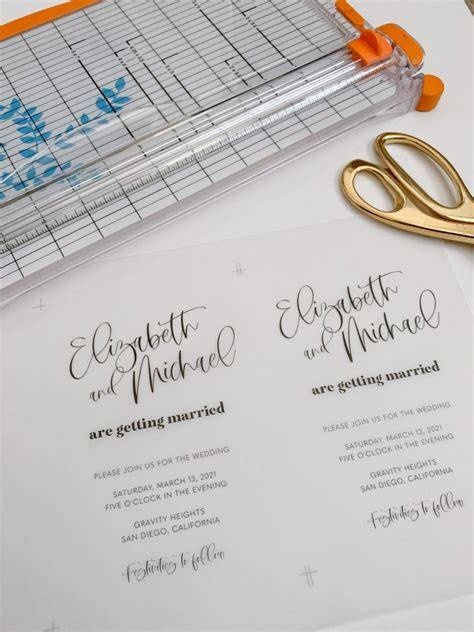 Elizabeth
and Michael
are getting married
PLEASE JOIN US FOR THE WEDDING
SATURDAY, MARCH 13, 2021
FIVE O'CLOCK IN THE EVENING
GRAVITY HEIGHTS
SAN DIEGO, CALIFORNIA
Festivities to follow
Elizabeth
and Michael
are getting married
PLEASE JOIN US FOR THE WEDDING
SATURDAY, MARCH 13, 2021
FIVE O'CLOCK IN THE EVENING
GRAVITY HEIGHTS
SAN DIEGO, CALIFORNIA
Festivities to follow